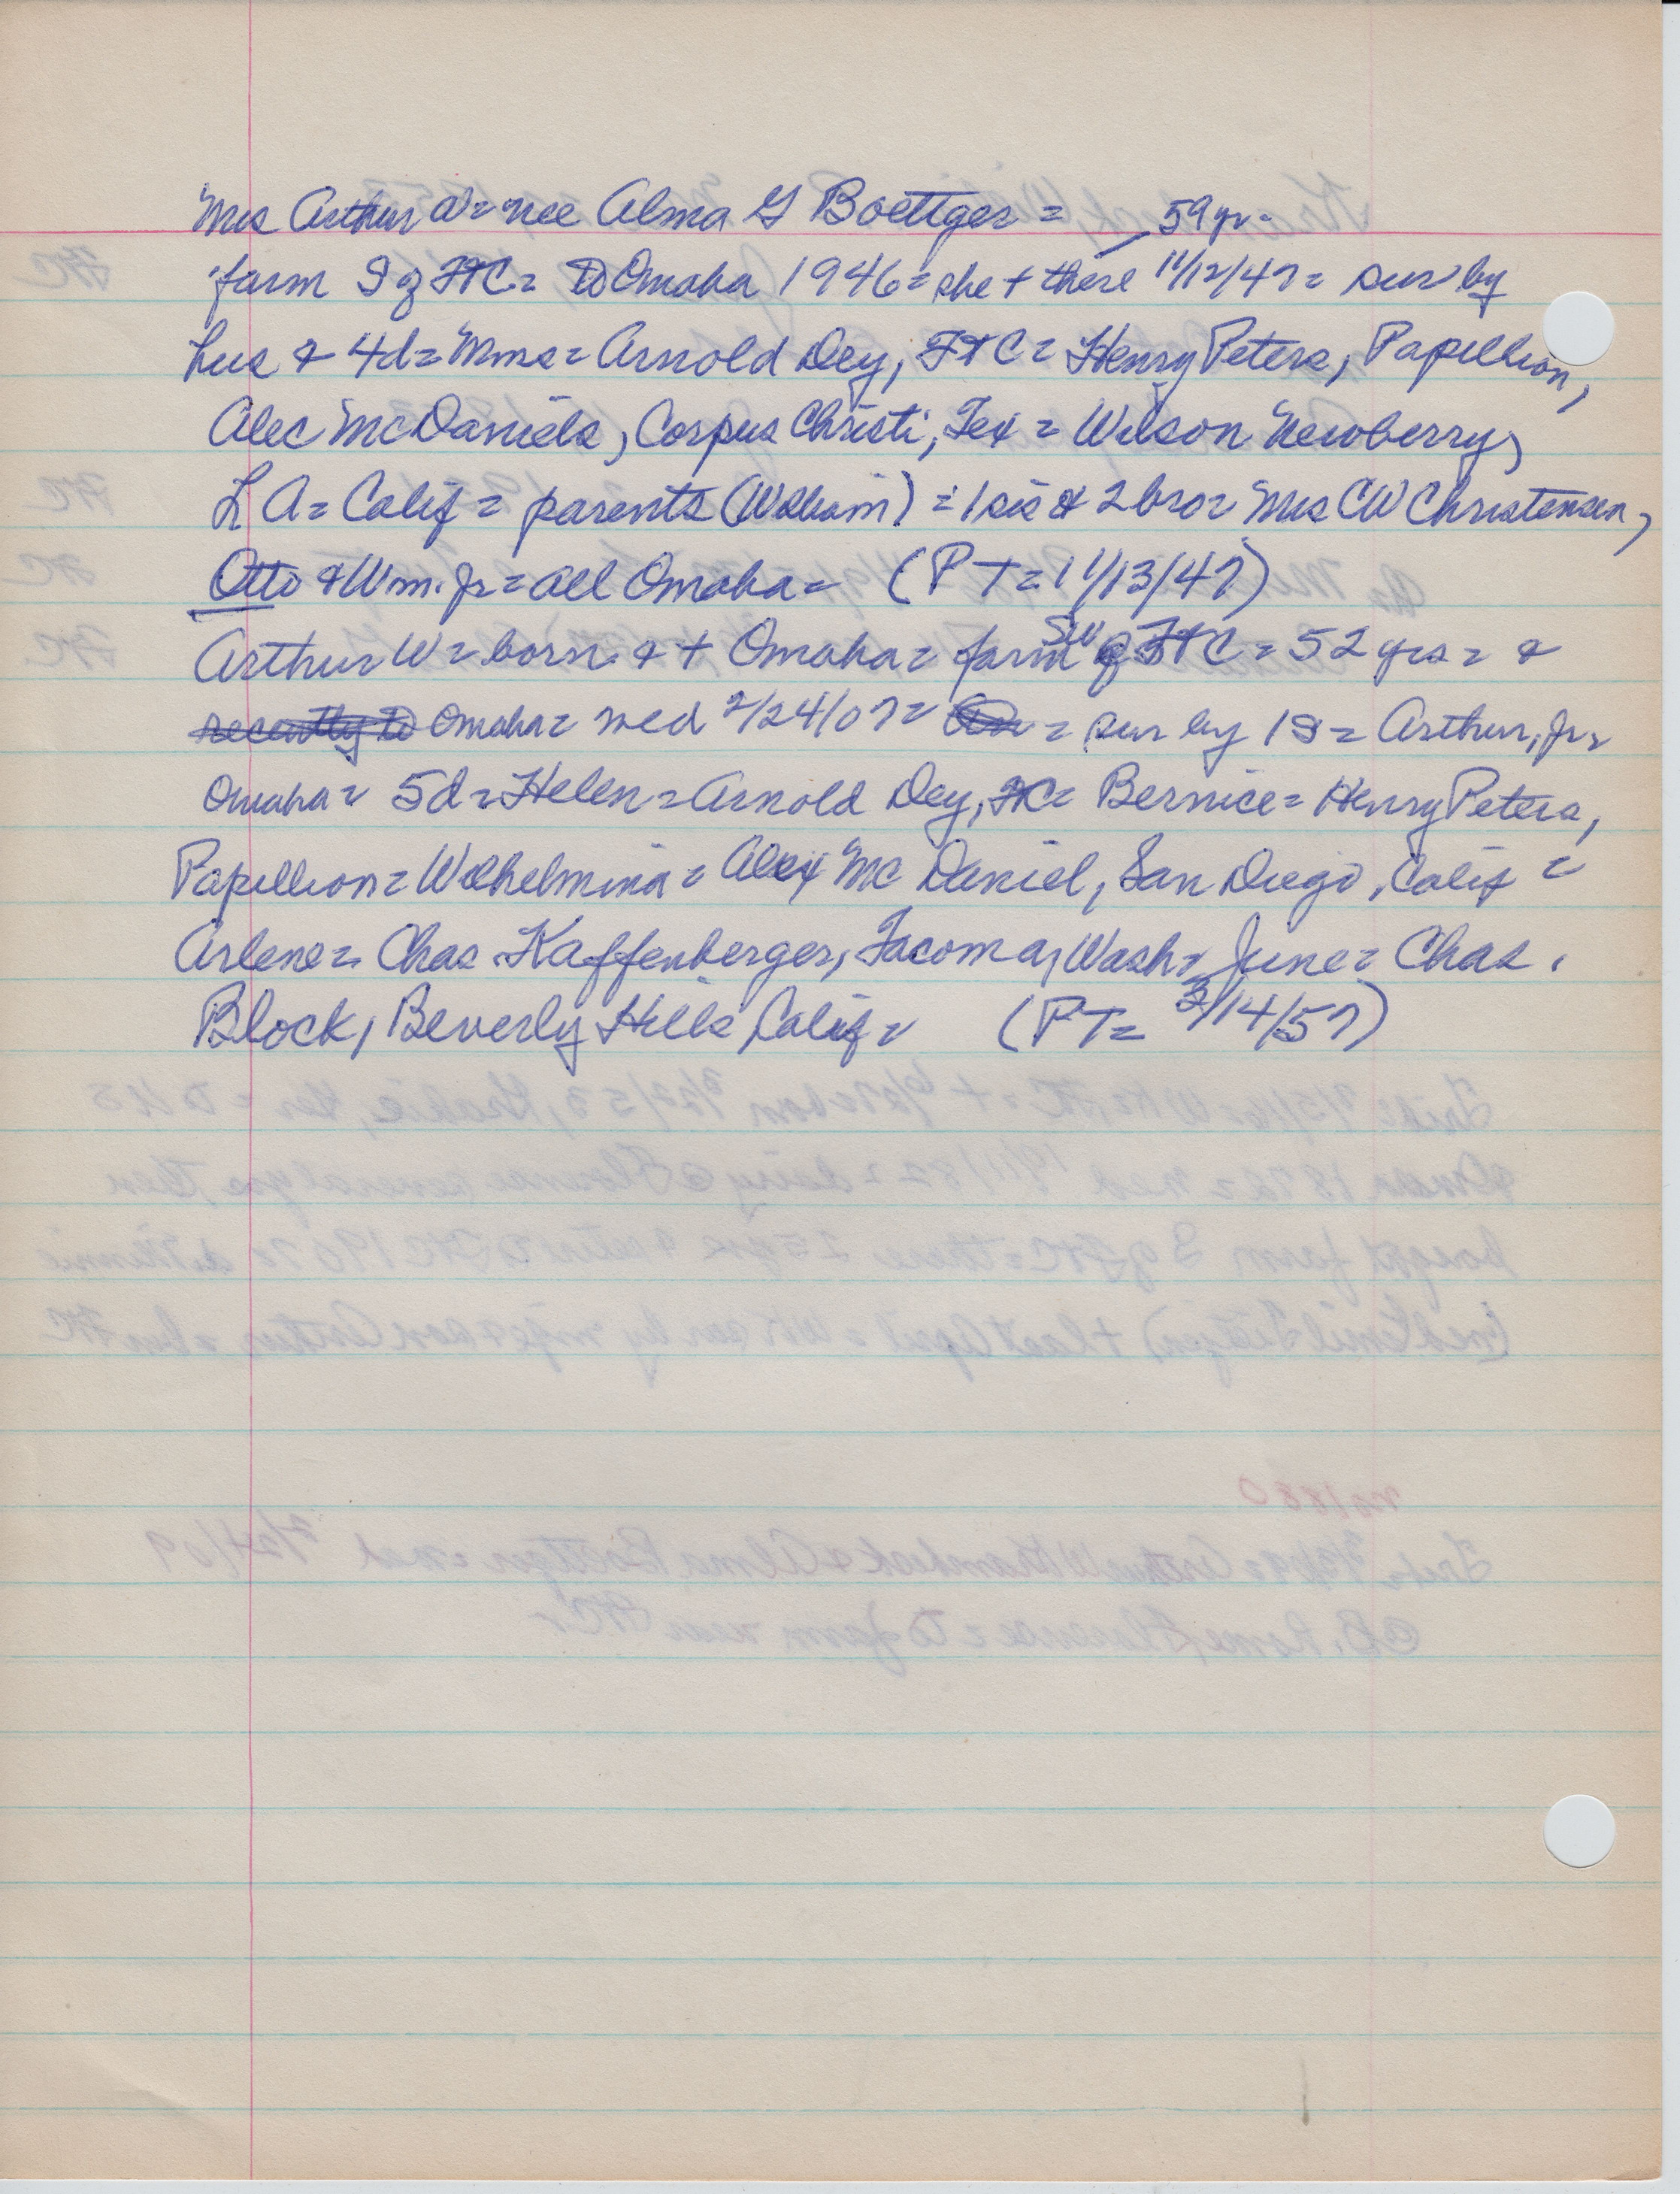 Mrs Arthur W = nee Alma G Boettger = 59 yr -
farm S of FtC = to Omaha 1946 = she + there 11/12/47 = sur by
hus & 4d = Mms = Arnold Dey, FtC = Henry Peters, Papillion,
Alec McDaniels, Corpus Christi, Tex = Wilson Newberry,
L A = Calif = parents (William) = 1 sis & 2 bro = Mrs CW Christensen,
Otto & Wm. Jr = all Omaha = (PT = 11/13/47)
Arthur W = born & + Omaha = farm SW of FtC = 52 yrs = &
recently to Omaha = med 2/24/07 = = sur by 1S = Arthur, Jr =
Omaha = 5d = Helen = Arnold Dey, FtC = Bernice = Henry Peters,
Papillion = Wilhelmina = Alex McDaniel, San Diego, Calif =
Arlene = Chas. Kaffenberger, Tacoma, Wash = June = Chas.
Block, Beverly Hills, Calif = (PT = 3/14/57)